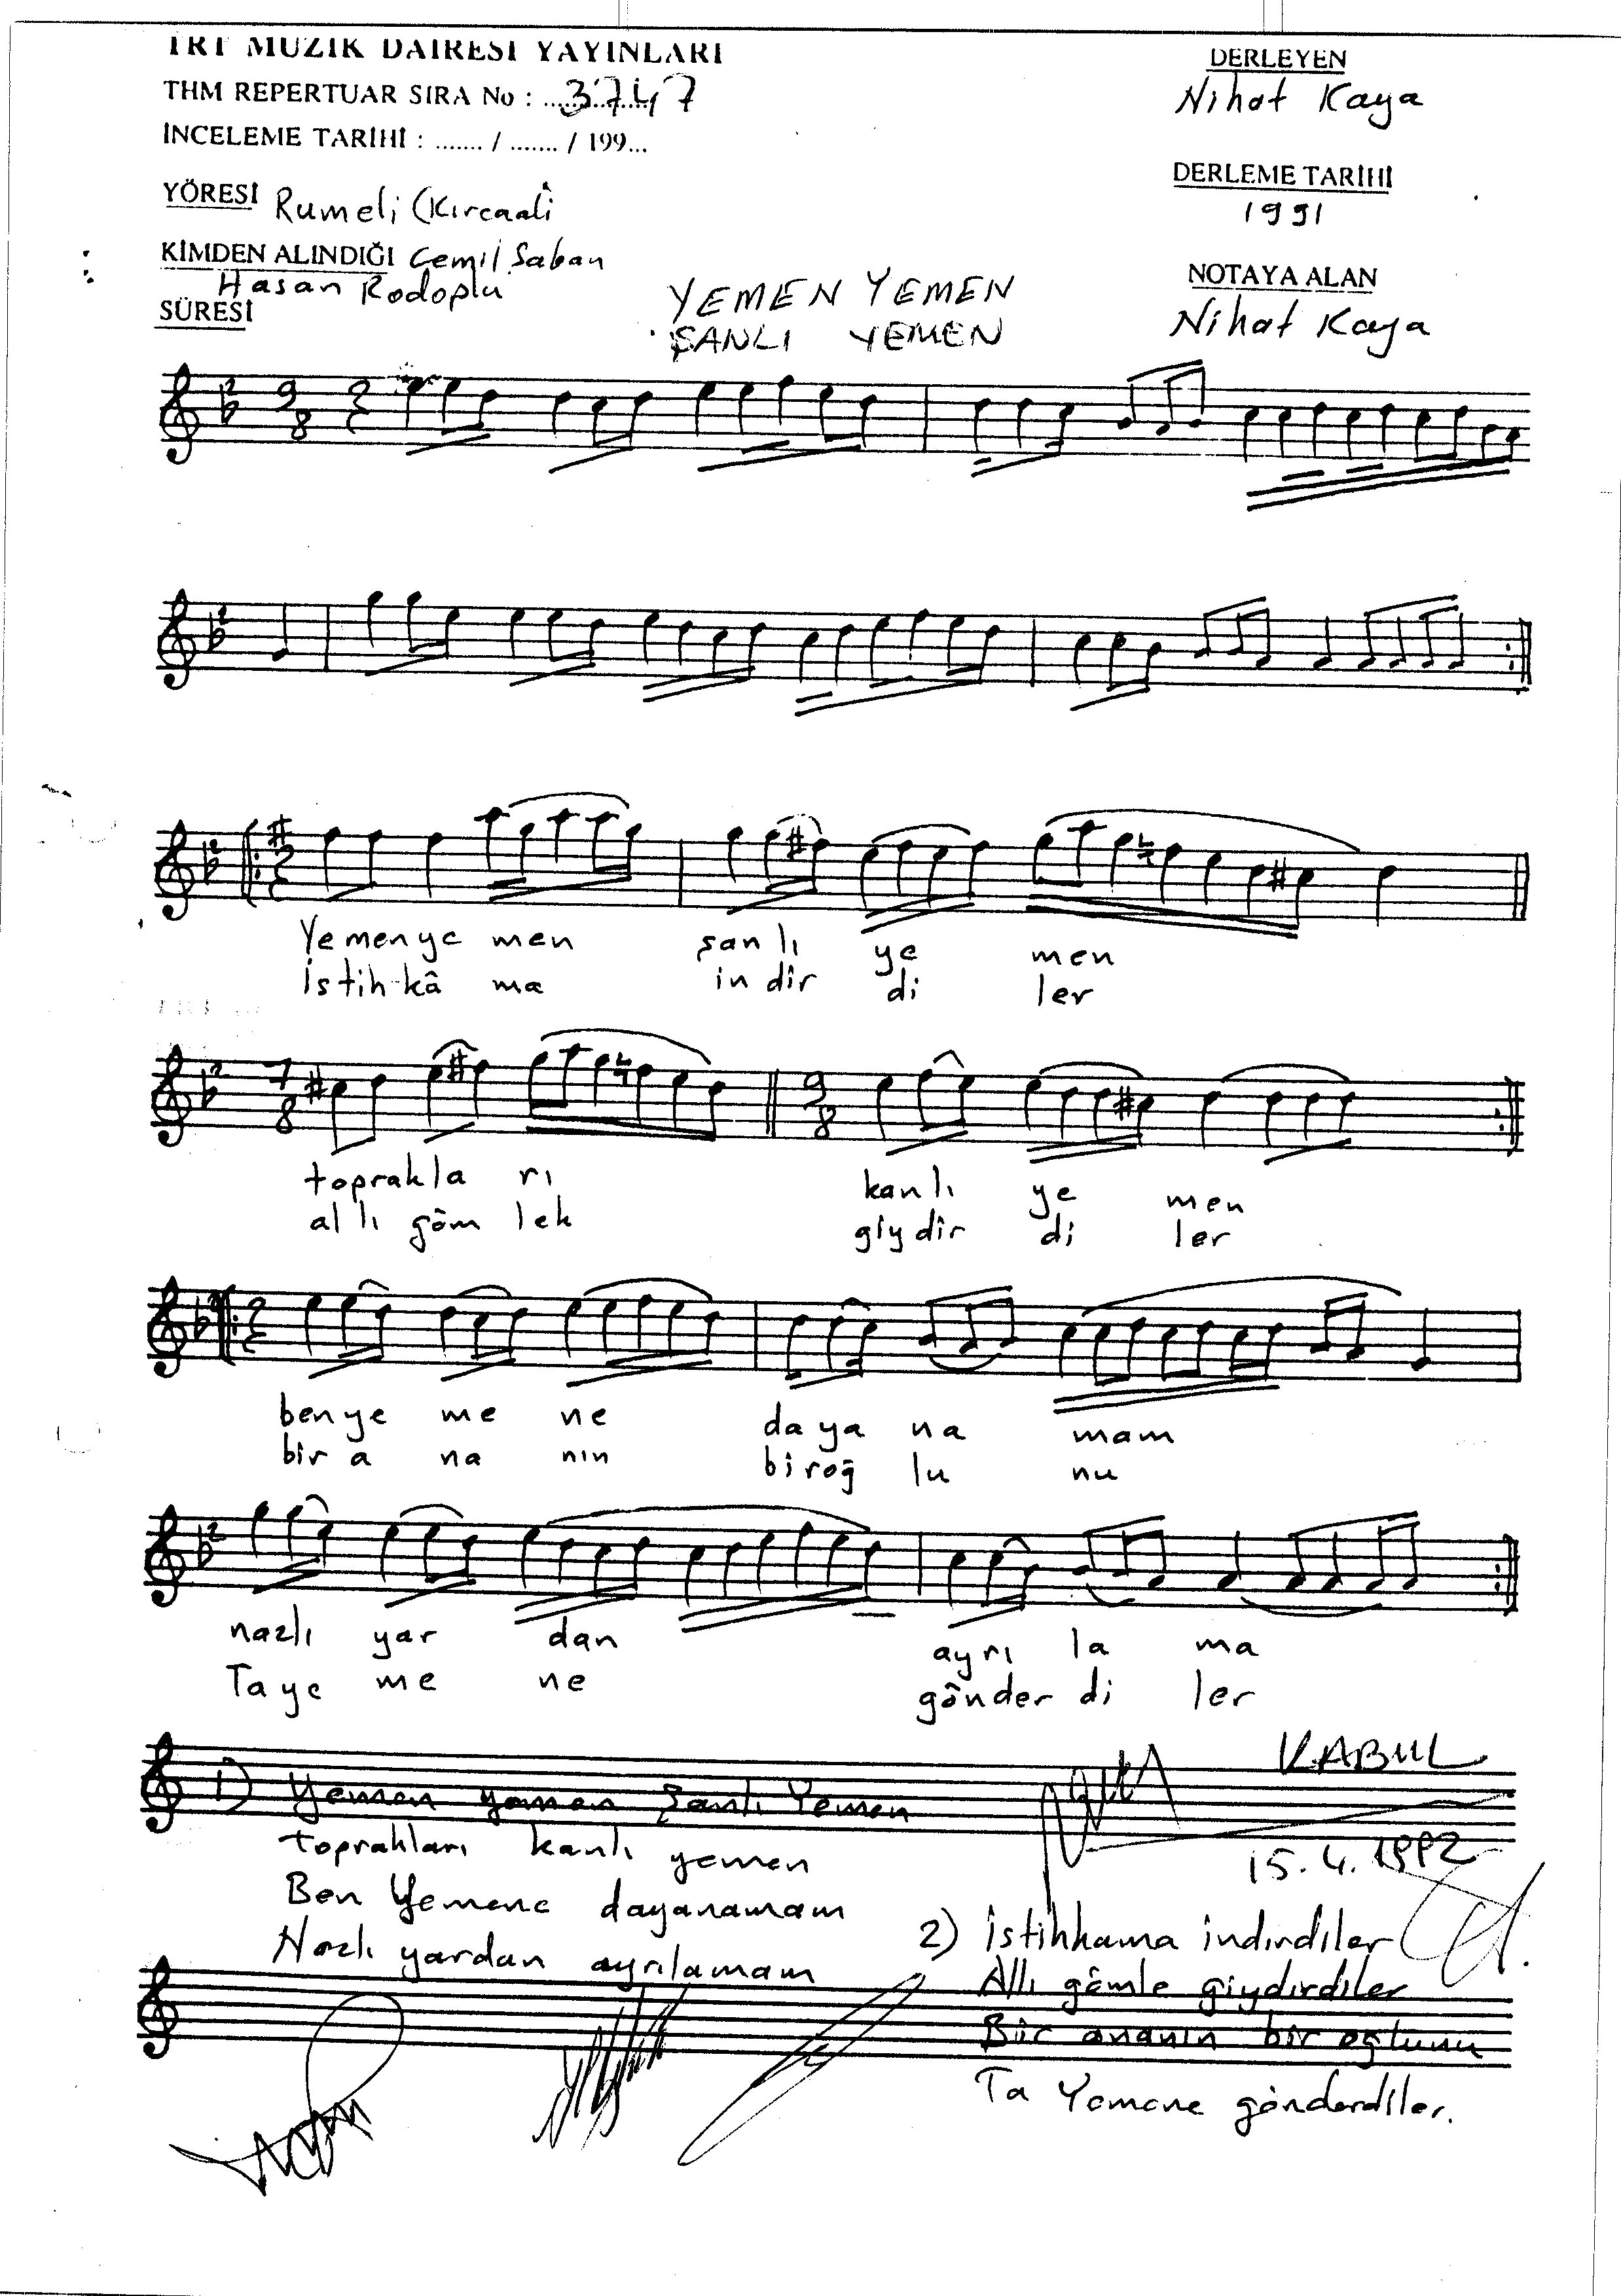 TRT MÜZİK DAİRESİ YAYINLARI
THM REPERTUAR SIRA No : 3747
İNCELEME TARİHİ : ....... / ....... / 199...
YÖRESİ Rumeli (Kırcaali
KİMDEN ALINDIĞI Cemil Şaban
Hasan Rodoplu
SÜRESİ
DERLEYEN
Nihat Kaya
DERLEME TARİHİ
1991
NOTAYA ALAN
Nihat Kaya
YEMEN YEMEN
ŞANLI YEMEN
9
8
Yemen ye men şanlı ye men
İstih-kâ ma in dir di ler
7
8
9
8
toprakla rı kanlı ye men
allı göm lek giydir di ler
ben ye me ne da ya na mam
bir a na nın bir oğ lu nu
nazlı yar dan ayrı la ma
Ta ye me ne gönder di ler
KABUL
15.4.1992
1) Yemen yemen Şanlı Yemen
toprakları kanlı yemen
Ben Yemene dayanamam
Nazlı yardan ayrılamam
2) İstihkama indirdiler
Allı gömle giydirdiler
Bir ananın bir oğlunu
Ta Yemene gönderdiler.